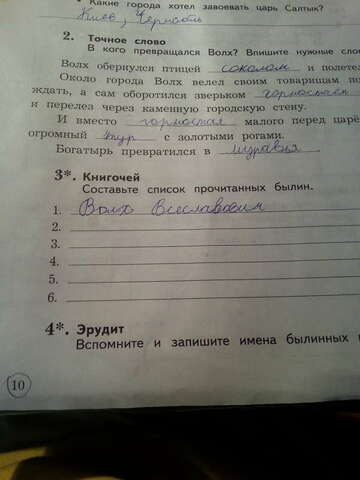 Какие города хотел завоевать царь Салтык?
Киев, Чернигов
2. Точное слово
В кого превращался Волх? Впишите нужные сло
Волх обернулся птицей соколом и полете
Около города Волх велел своим товарищам по
ждать, а сам оборотился зверьком горностаем
и перелез через каменную городскую стену.
И вместо горностая малого перед царё
огромный тур с золотыми рогами.
Богатырь превратился в муравья
3*. Книгочей
Составьте список прочитанных былин.
1. Волх Всеславович
2.
3.
4.
5.
6.
4*. Эрудит
Вспомните и запишите имена былинных
10